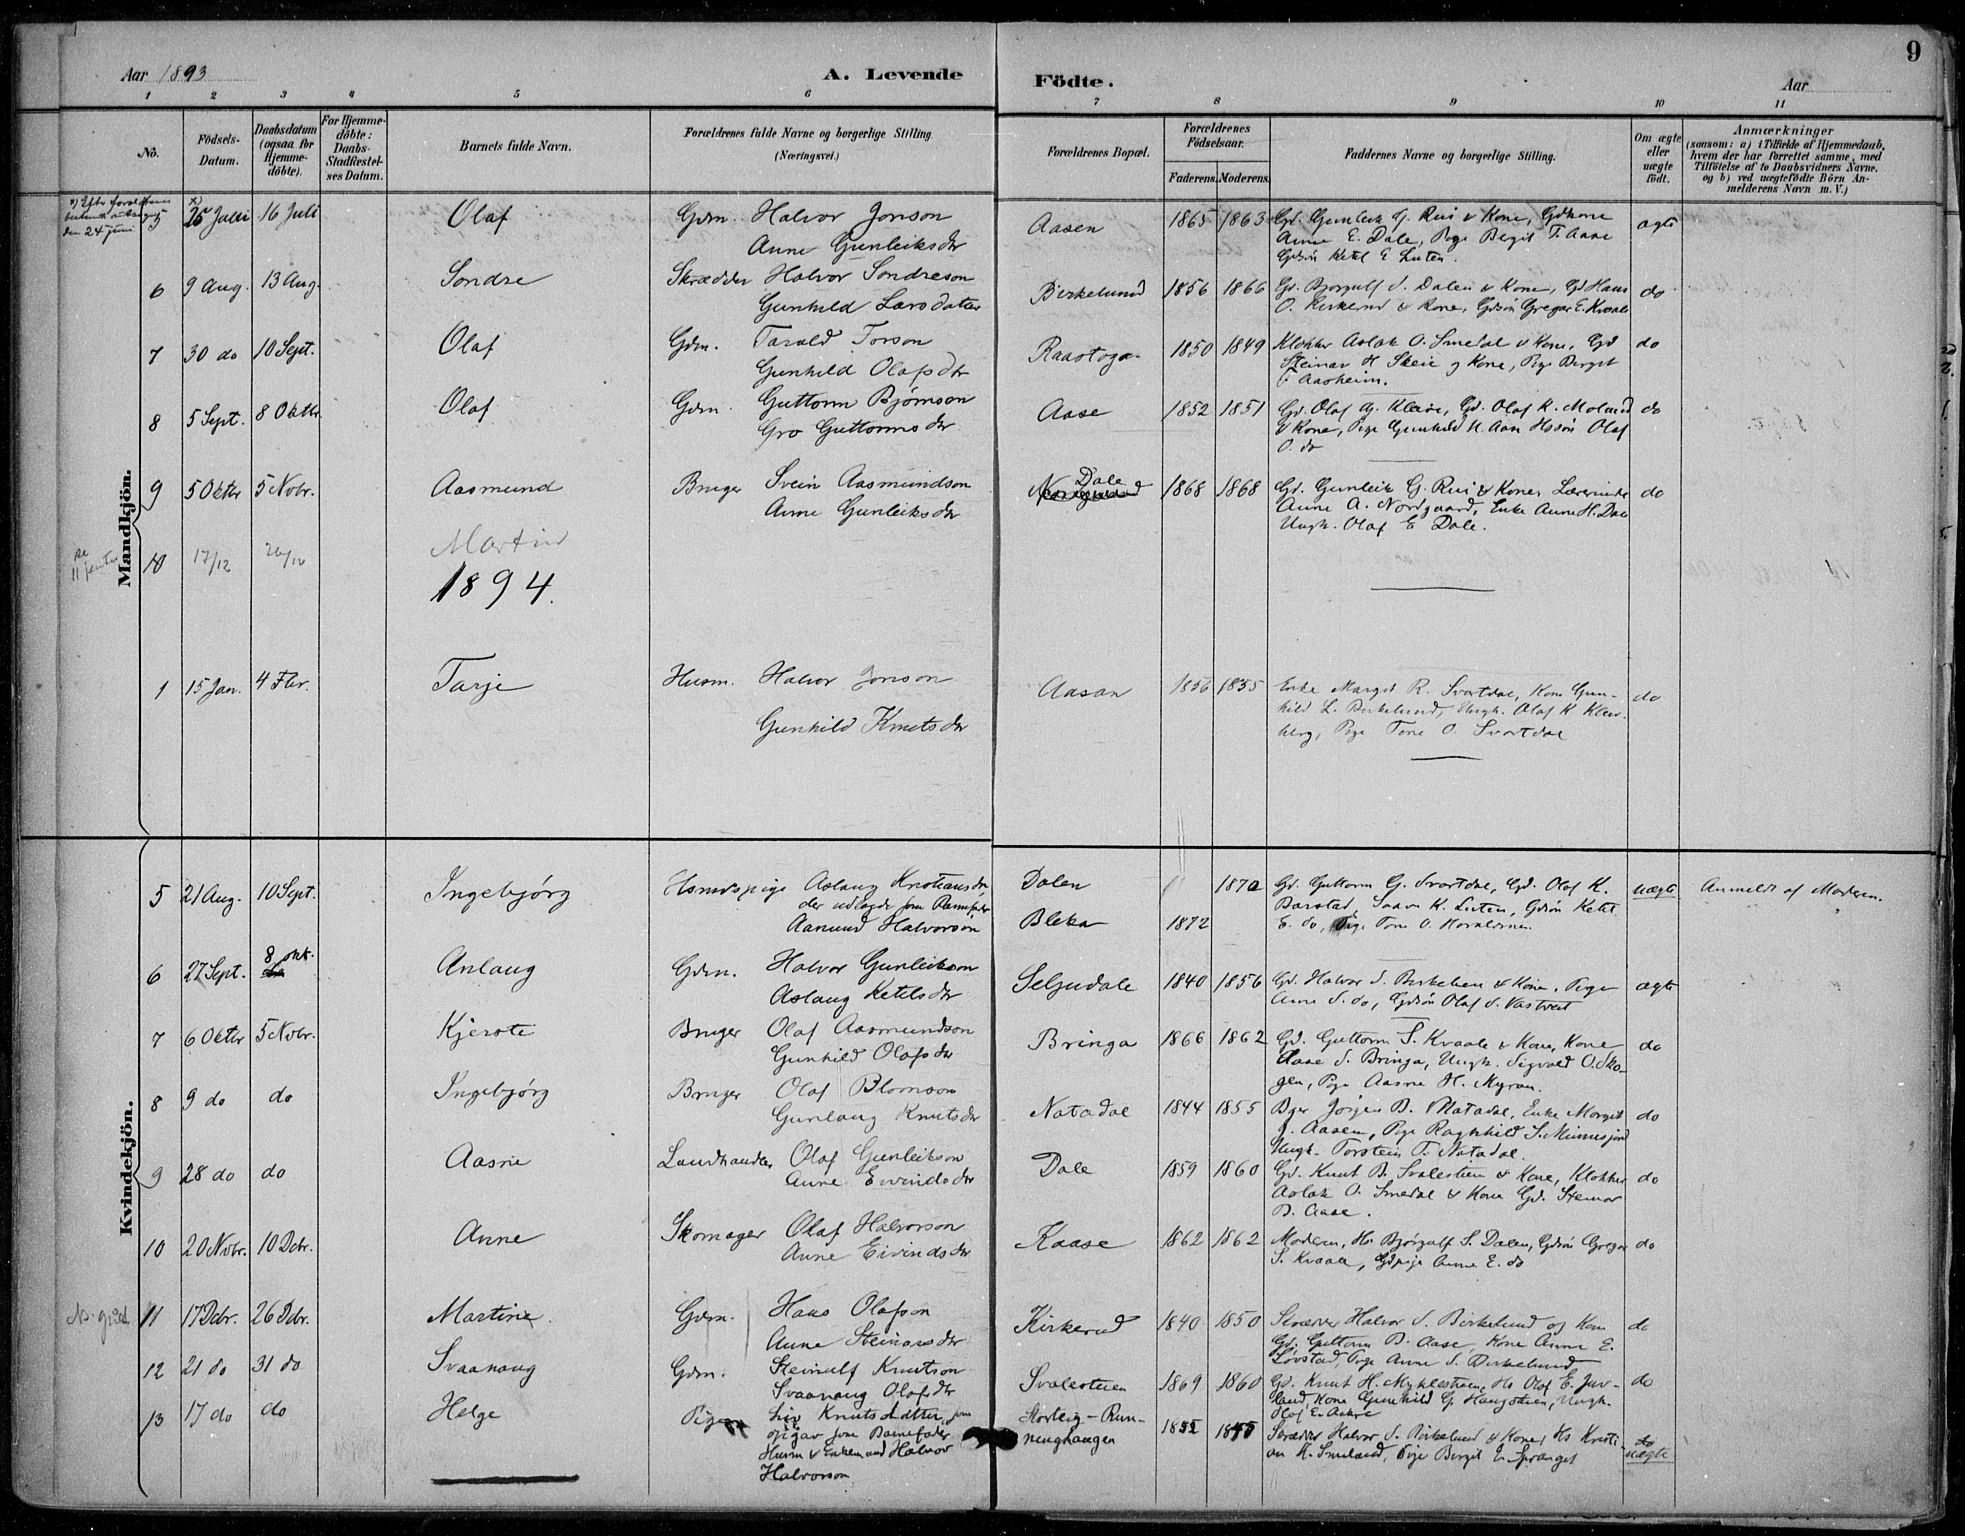 Aar 1893
A. Levende
Födte.
Aar
9
1 2 3 4 5 6 7 8 9 10 11
No.
Födsels-Datum.
Daabsdatum (ogsaa for Hjemme-döbte).
For Hjemme-döbte: Daabs-Stadfæstel-ses Datum.
Barnets fulde Navn.
Forældrenes fulde Navne og borgerlige Stilling.
(Næringsvei.)
Forældrenes Bopæl.
Forældrenes Födselsaar.
Faderens. Moderens.
Faddernes Navne og borgerlige Stilling.
Om ægte eller uægte födt.
Anmærkninger
(saasom: a) i Tilfælde af Hjemmedaab, hvem der har forrettet samme, med Tilföielse af to Daabsvidners Navne, og b) ved uægtefödte Börn An-melderens Navn m. V.)
Mandkjön.
den 24 juni
5 25 Juli 16 Juli Olaf Gdm. Halvor Jonson Aasen 1865 1863 Gd. Gunleik G. Rui & Kone, Gdkone ægte
Anne Gunleiksdtr Anne E. Dale, Pige Birgit T. Aase
Gdsön Ketil E Luten.
6 9 Aug. 13 Aug. Sondre Skrædder Halvor Sondreson Birkelund 1856 1866 Gd. Bjorgulf S. Dalen & Kone, Gd Hans do
Gunhild Larsdatter O. Kirkerud & Kone, Gdsön Gregar E. Kvaale
7 30 do 10 Sept. Olaf Gdm. Tarald Torson Raastoga 1850 1849 Klokker Aslak O. Smedal & Kone, Gd do
Gunhild Olafsdtr Steinar H Skeie og Kone, Pige Birgit
T. Aasheim.
8 5 Sept. 8 Oktbr. Olaf Gdm. Guttorm Bjørnson Aase 1852 1851 Gd. Olaf G. Kleive, Gd. Olaf K. Moland do
Gro Guttormsdtr & Kone, Pige Gunhild K Aase Hssön Olaf
O. do
9 5 Oktbr 5 Novbr. Aasmund Bruger Svein Aasmundson Dale 1868 1868 Gd. Gunleik G. Rui & Kone, Lærerinde do
Anne Gunleiksdtr Anne A. Nordgaard, Enke Anne H. Dale
Ungk. Olaf E Dale.
se 11 jenter
10 17/12 26/12 Martin
1894.
1 15 Jan. 4 Fbr. Tarje Husm. Halvor Jonson Aasan 1856 1855 Enke Margit R. Svartdal, Kone Gun- do
Gunhild Knutsdtr hild L. Birkelund, Ungk. Olaf K Klev-
berg, Pige Tone O. Svartdal
Kvindekjön.
5 21 Aug. 10 Sept. Ingebjørg Husmspige Aslaug Kristiansdtr Dalen 1872 Gd. Guttorm G. Svartdal, Gd. Olaf K. uægte Anmeldt af Moderen.
der udlagde som Barnefader Barstad, Saave K. Luten, Gdsön Ketil
Aamund Halvorson Bleka 1872 E. do, Pige Tone O.
6 27 Sept. 8 okt. Anlaug Gdm. Halvor Gunleikson Seljudale 1840 1856 Gd. Halvor S. Birkelien & Kone, Pige ægte
Aslaug Ketilsdtr Anne S. do, Gdsön Olaf S. Vastveit
7 6 Oktbr 5 Novbr. Kjerste Bruger Olaf Aasmundson Bringa 1866 1862 Gd. Guttorm S. Kvaale & Kone, Kone do
Gunhild Olafsdtr Aase S. Bringa, Ungk. Sigvald O. Sko-
gen, Pige Aasne H. Myran.
8 9 do do Ingebjørg Bruger Olaf Blomson Natadal 1844 1855 Bger Jörgen B. Natadal, Enke Margit do
Gunlaug Knutsdtr J. Aasen, Pige Ragnhild S. Minnesjord
Ungk. Torstein T. Natadal.
9 28 do do Aasne Landhandler Olaf Gunleikson Dale 1859 1860 Gd. Knut B. Svalestien & Kone, Klokker do
Anne Eivindsdtr Aslak O. Smedal & Kone Gd. Steinar
B. Aase.
10 20 Novbr. 10 Dcbr. Anne Skomager Olaf Halvorson Kaase 1862 1862 Moderen, Hs Bjørgulf S. Dalen, Gdsön Gregar do
Anne Eivindsdtr S. Kvaale, Gdpige Anne E. do
11 17 Dcbr. 26 Dcbr. Martine. Gdm. Hans Olafson Kirkerud 1840 1850 Skræder Halvor S. Birkelund og Kone do
Anne Steinarsdtr Gd. Guttorm B. Aase, Kone Anne E.
Lövstad, Pige Anne S. Birkelund
12 21 do 31 do Svaanaug Gdm. Steinulf Knutson Svalestuen 1869 1860 Gd. Knut H. Myklestuen, Hs Olaf E. Juv- do
Svaanaug Olafsdtr land, Kone Gunhild G. Haugstien, Ungk.
Olaf E.
13 17 do do Helge Pige Liv Knutsdatter, som Storleig - Run- 1852 1855 Skræder Halvor S. Birkelund & Kone, Hs Kristi-
opgav som Barnefader ninghaugen an K. Smeland, Pige Birgit E. Spranget do uægte
Husm & Enkemand Halvor
Halvorson